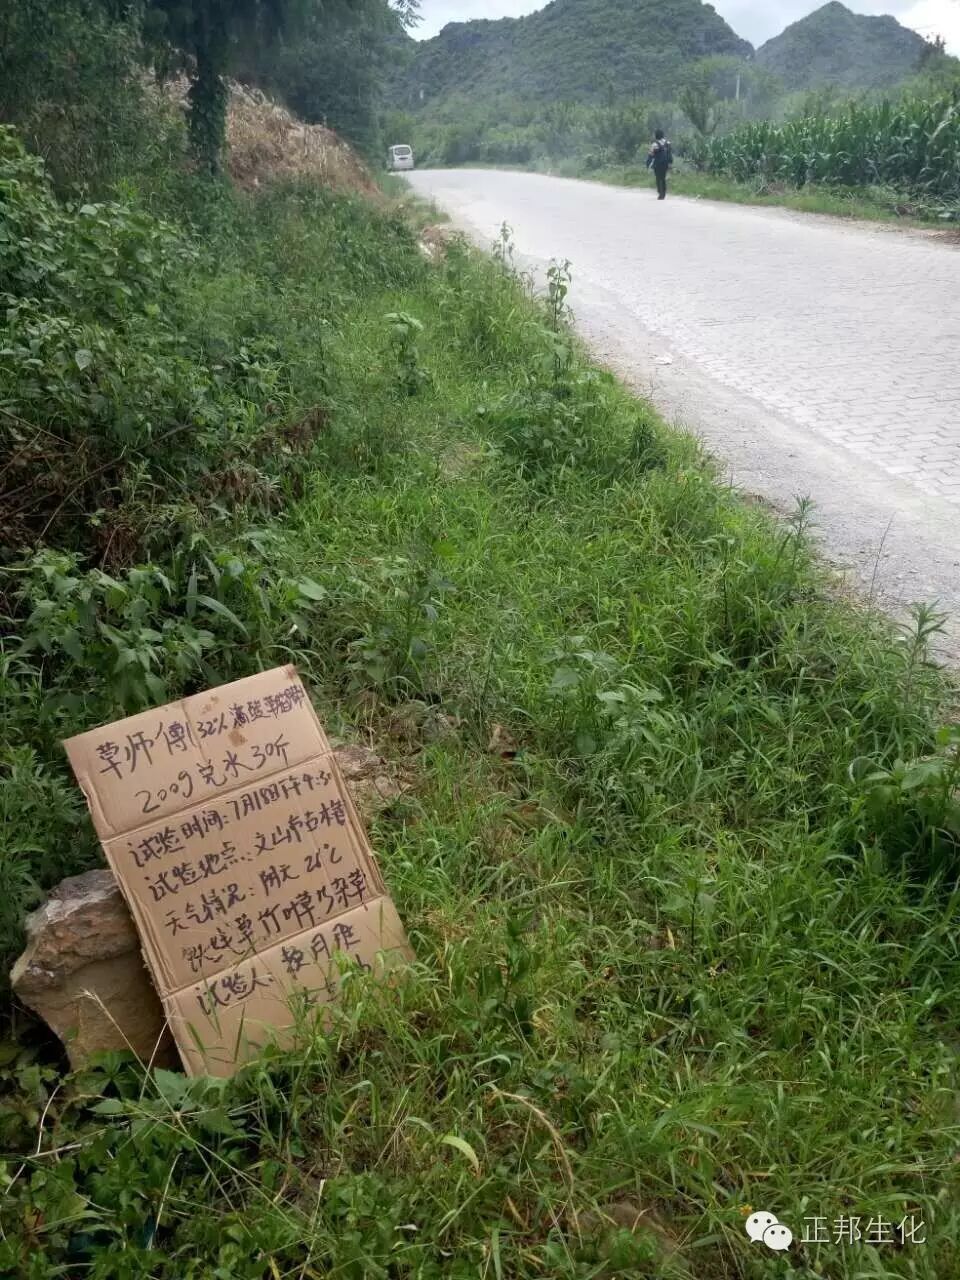 草师傅32%滴酸草甘膦
200g兑水30斤
试验时间:7月18日下午4:30
试验地点:文山市古木镇
天气情况:阴天 21℃
铁线草 竹叶草 杂草
试验人:
正邦生化